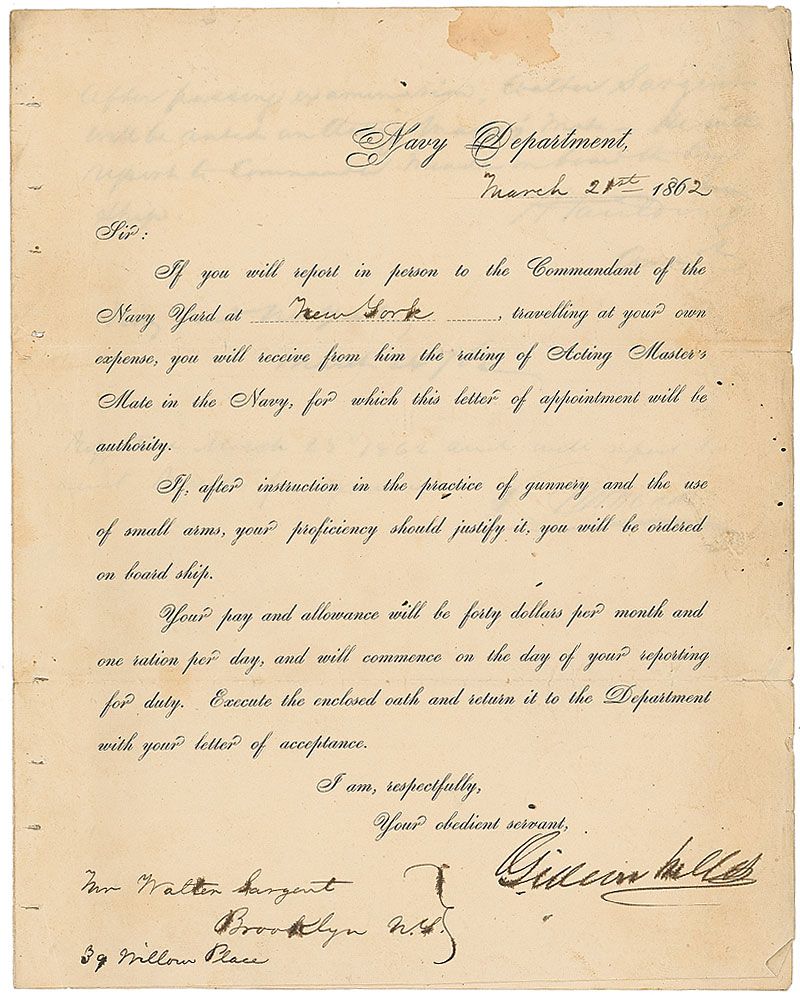 Navy Department,
March 21st 1862
Sir:
If you will report in person to the Commandant of the
Navy Yard at New York, travelling at your own
expense, you will receive from him the rating of Acting Master's
Mate in the Navy, for which this letter of appointment will be
authority.
If, after instruction in the practice of gunnery and the use
of small arms, your proficiency should justify it, you will be ordered
on board ship.
Your pay and allowance will be forty dollars per month and
one ration per day, and will commence on the day of your reporting
for duty. Execute the enclosed oath and return it to the Department
with your letter of acceptance.
I am, respectfully,
Your obedient servant,
Gideon Welles
Mr Walter Sargent
Brooklyn N.Y.
39 Willow Place